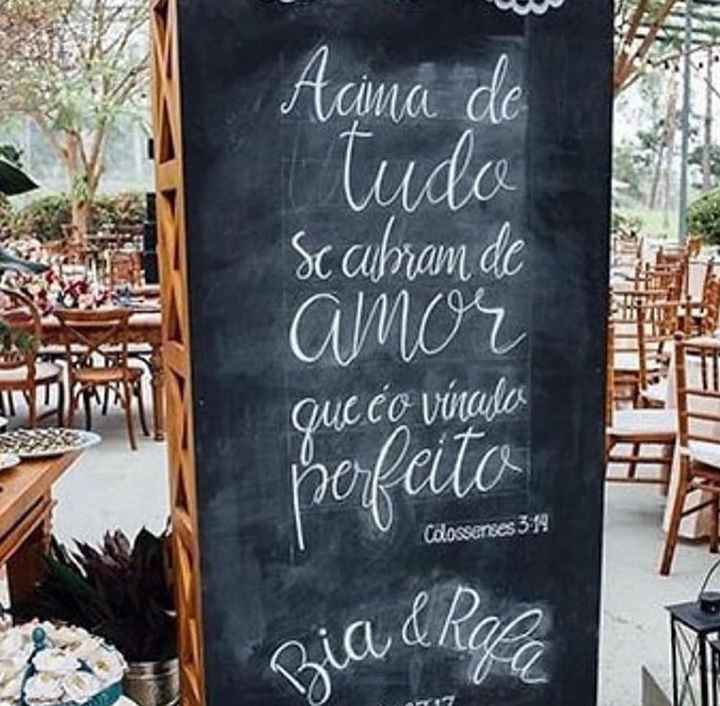 Acima de
tudo
se cubram de
amor
que é o vínculo
perfeito
Colossenses 3:14
Bia & Rafa